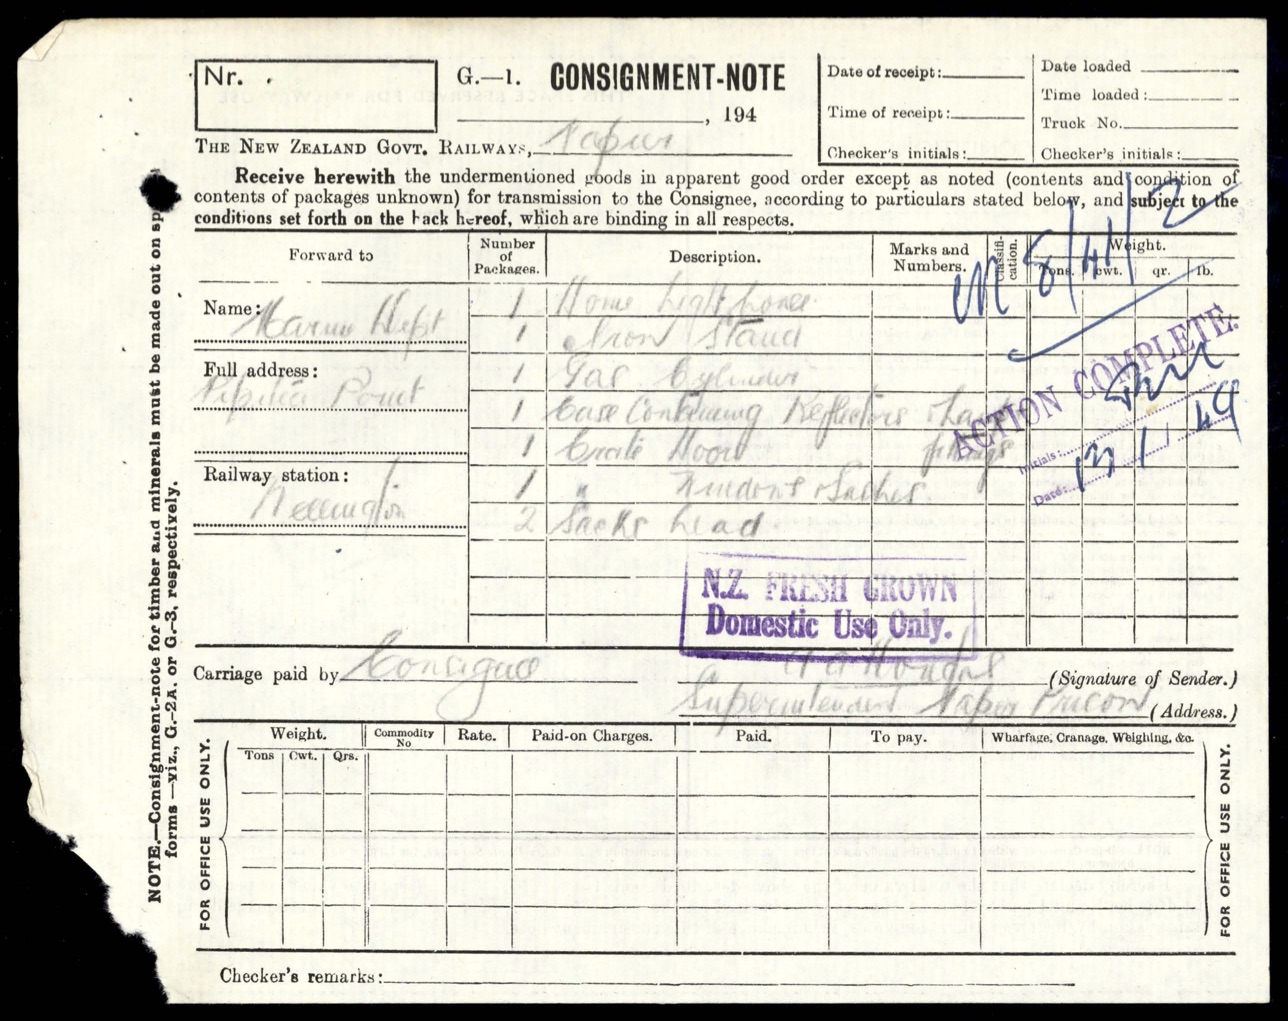 Nr.
G.—1. CONSIGNMENT-NOTE
, 194
THE NEW ZEALAND GOVT. RAILWAYS, Napier
Date of receipt:
Time of receipt:
Checker's initials:
Date loaded
Time loaded:
Truck No.
Checker's initials:
Receive herewith the undermentioned goods in apparent good order except as noted (contents and condition of
contents of packages unknown) for transmission to the Consignee, according to particulars stated below, and subject to the
conditions set forth on the back hereof, which are binding in all respects.
M 8/41/2
Forward to
Number of Packages.
Description.
Marks and Numbers.
Classification.
Weight.
Tons. cwt. qr. lb.
Name: Marine Dept
Full address:
Pipitea Point
Railway station:
Wellington
1 Home Light
1 Iron Stand
1 Gas Cylinder
1 Case Containing Reflectors
1 Crate fittings
1 " Sashes
2 Sacks Lead
ACTION COMPLETE.
Initials:
Date: 13/1/49
N.Z. FRESH GROWN
Domestic Use Only.
Carriage paid by Consignee
(Signature of Sender.)
Superintendent Napier Prison (Address.)
FOR OFFICE USE ONLY.
Weight.
Tons Cwt. Qrs.
Commodity No
Rate.
Paid-on Charges.
Paid.
To pay.
Wharfage, Cranage, Weighing, &c.
FOR OFFICE USE ONLY.
Checker's remarks:
NOTE.—Consignment-note for timber and minerals must be made out on sp
forms—viz., G.-2A. or G.-3, respectively.